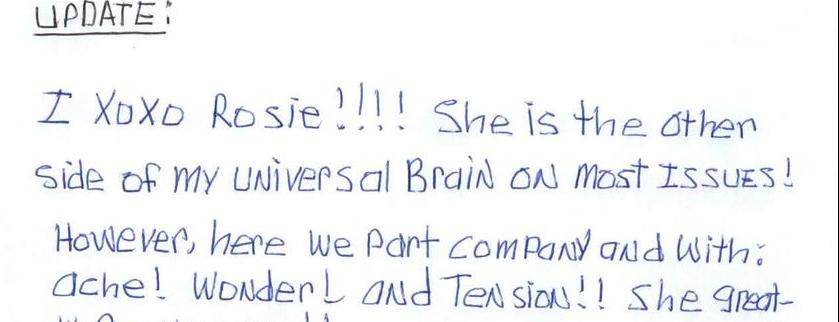 UPDATE:
I XOXO Rosie!!!! She is the other
side of my universal Brain on most ISSUES!
However, here we part company and with:
ache! Wonder! and Tension!! She great-